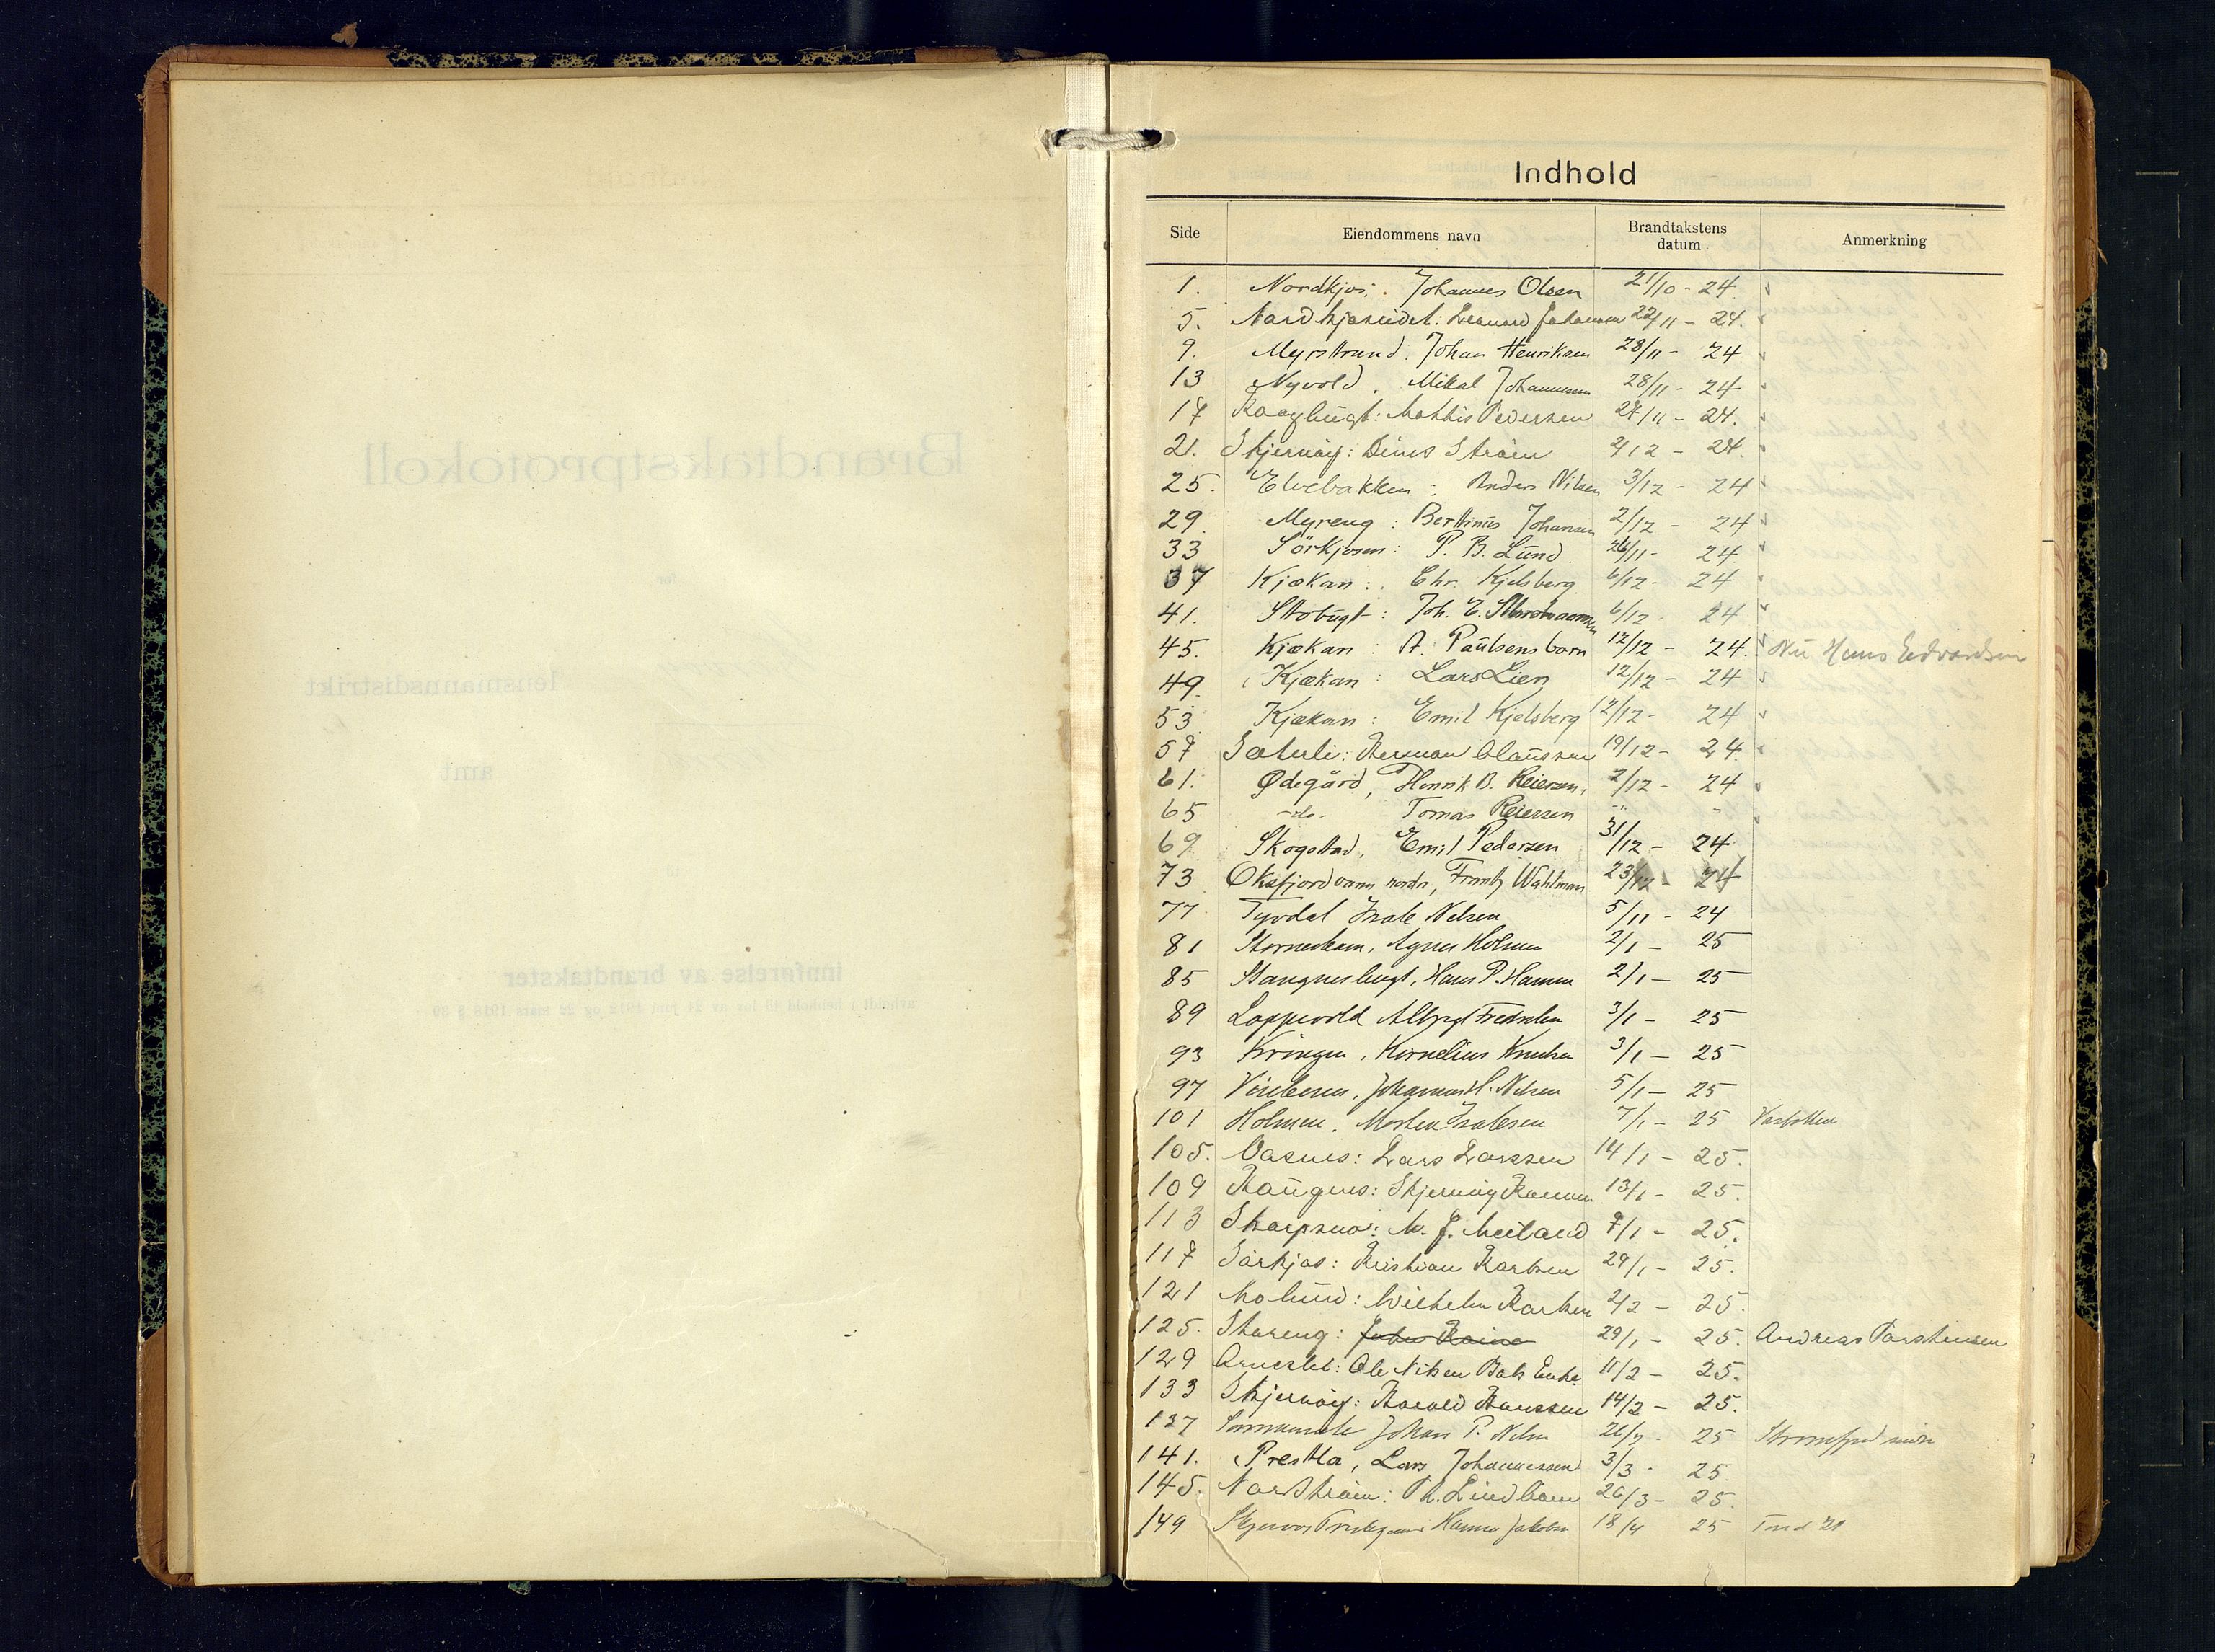 Indhold
Side Eiendommens navn Brandtakstens datum Anmerkning
1. Nordkjos: Johannes Olsen 21/10 - 24
5. Nordkjoseidet: Leonard Johansen 22/11 - 24.
9. Myrstrand. Johan Henriksen 28/11 - 24
13 Nyvold. Mikal Johannesen 28/11 - 24
17 Mathis Pedersen 27/11 - 24.
21. Skjervöy: Dines Ström 2/12 - 24.
25. Elvebakken: Anders Nilsen 3/12 - 24
29. Myreng: Bertinus Johansen 2/12 - 24
33 Sörkjosen: P. B. Lund 26/11 - 24
37 Kjækan: Chr. Kjelsberg 6/12 - 24
41. Stobugt: Joh. E. 6/12 - 24
45. Kjækan: A. Paulsens barn 12/12 - 24. Nu Hans Edvardsen
49. Kjækan: Lars Lien 12/12 - 24
53 Kjækan: Emil Kjelsberg 12/12 - 24
57 Sæterli: Herman Claussen 19/12 - 24.
61. Ødegård, Henrik B. Reiersen, 2/12 - 24
65 -do- Tomas Reiersen " "
69 Skogstad, Emil Pedersen 31/12 - 24
73 Oksfjordvann nordre, Frantz Wahlman 23/12 - 24
77 Tyvdal Isak Nilsen 5/11 - 24
81 Agnes Holmen 2/1 - 25
85 Stangnesbugt, Hans P. Hansen 2/1 - 25
89 Loppevold 3/1 - 25
93 Kringen, Kornelius Knutsen 3/1 - 25
97 Johannes H. Nilsen 5/1 - 25
101 Holmen. Morten Isaksen 7/1 - 25
105. Vasnes: Lars Larssen 14/1 - 25.
109 Haugnes: Skjervöy Kommune 13/1 - 25.
113 M. J. Meiland 7/1 - 25.
117 Sörkjos: Kristian Karlsen 29/1 - 25.
121 Wilhelm Karlsen 2/2 - 25.
125. Storeng: 29/1 - 25. Andreas Torstensen
129 Ole Nilsen Bals Enke 11/2 - 25.
133 Skjervöy: Harald Hanssen 14/2 - 25.
137 Johan P. Nilsen 26/2 - 25
141. Prestla, Lars Johannessen 3/3 - 25
145. Nordström: 26/3 - 25.
149 Hanna Jakobsen 18/4 25